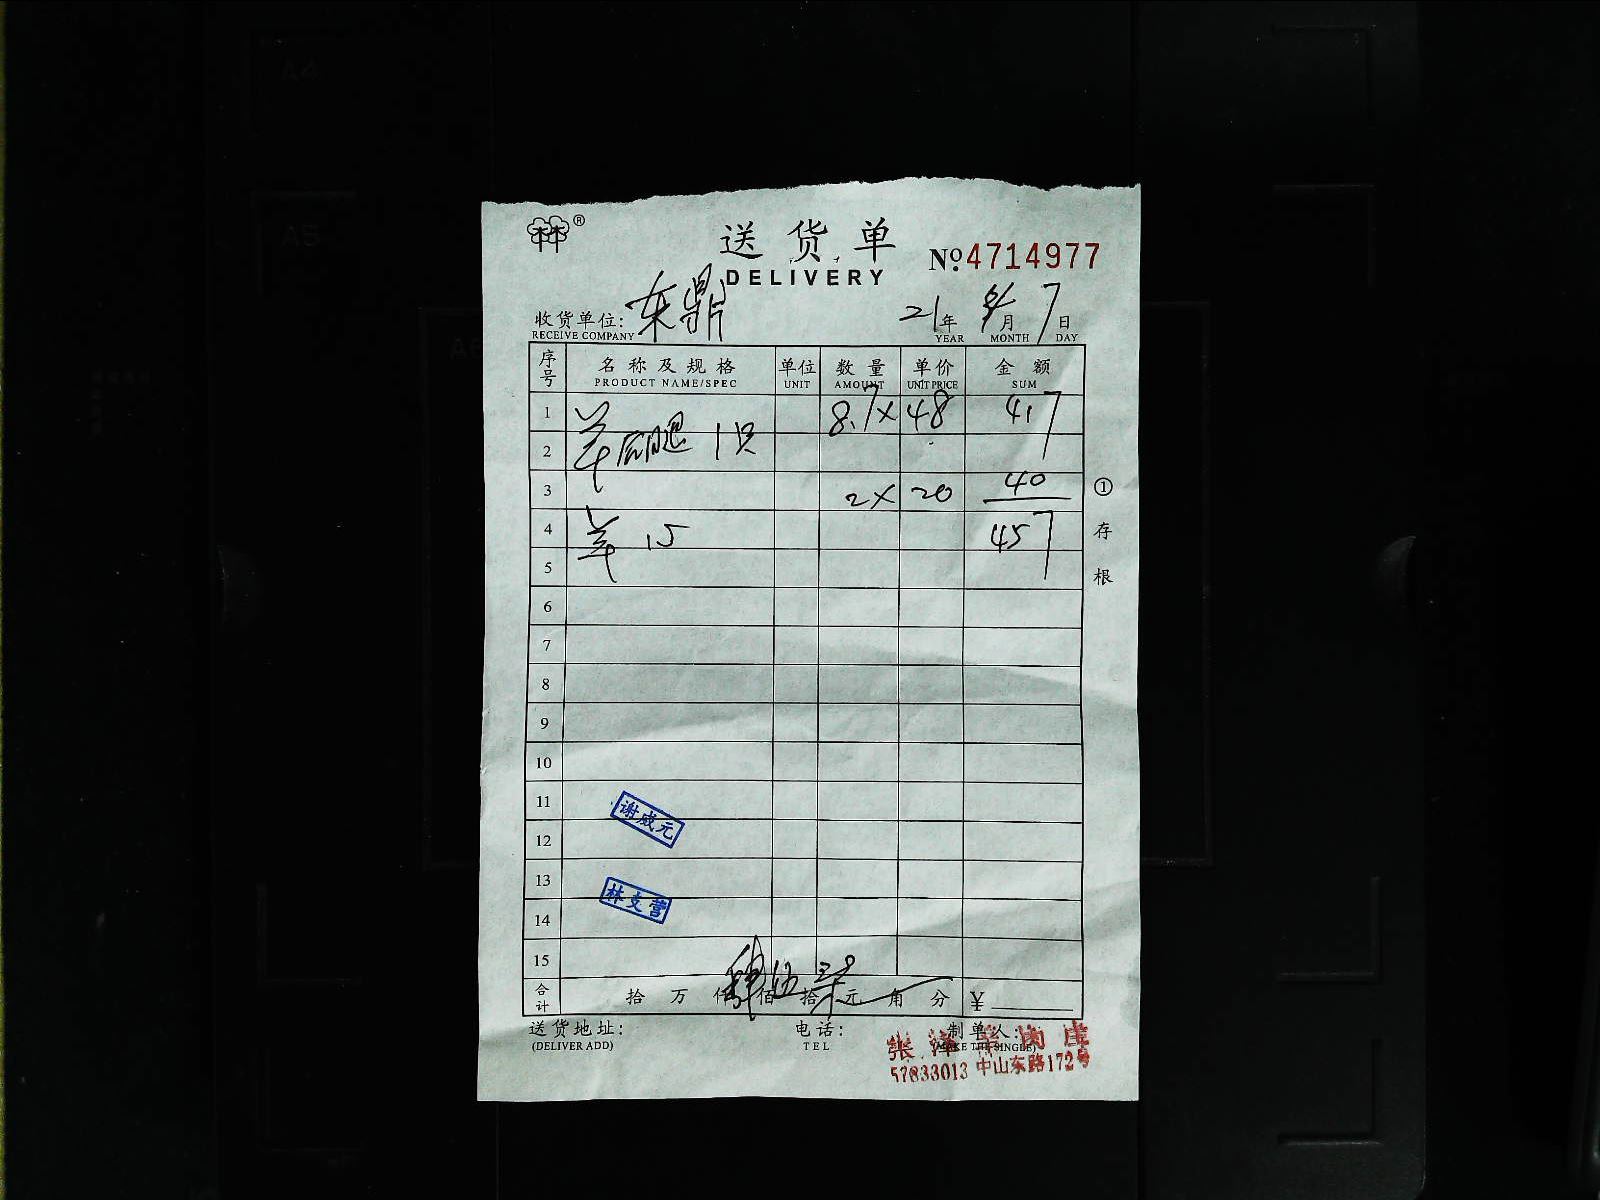 A4
A5
®
送货单
DELIVERY
№4714977
收货单位: 东鼎
RECEIVE COMPANY
21年 月 7日
YEAR MONTH DAY
序号 名称及规格 单位 数量 单价 金额
PRODUCT NAME/SPEC UNIT AMOUNT UNIT PRICE SUM
1 8.7× 48 417
2 羊后腿 1只
3 2× 20 40
4 羊 457
5
6
7
8
9
10
11
谢咸元
12
13
林支营
14
15
合计 拾 万 仟 佰 拾 元 角 分 ¥
肆伍柒
送货地址: 电话: 制单人:
(DELIVER ADD) TEL (MAKE THE SINGLE)
张泽羊肉庄
57833013 中山东路172号
①存根